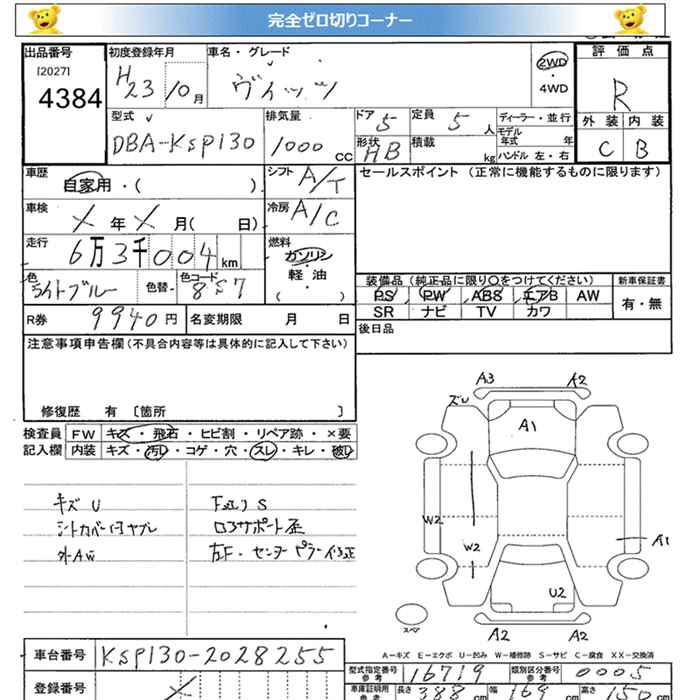 完全ゼロ切りコーナー
出品番号
[2027]
4384
初度登録年月
H23/10月
車名・グレード
ヴィッツ
2WD
・
4WD
評価点
R
外装 内装
C B
型式
DBA-KSP130
排気量
1000 cc
ドア 5
定員 5 人
形状 HB
積載 kg
ディーラー・並行
モデル年式 年
ハンドル 左・右
車歴
自家用・( )
シフト A/T
セールスポイント (正常に機能するものに限ります)
車検
X 年 X 月( 日)
冷房 A/C
走行
6万3千004 km
燃料
ガソリン
・
軽・油
( )
色
ライトブルー
色替・
色コード
8S7
装備品(純正品に限り○をつけてください)
新車保証書
PS PW ABS エアB AW
SR ナビ TV カワ
有・無
R券 9940円
名変期限 月 日
後日品
注意事項申告欄(不具合内容等は具体的に記入して下さい)
修復歴 有 〔箇所 〕
検査員 FW キズ・飛石・ヒビ割・リペア跡・×要
記入欄 内装 キズ・汚レ・コゲ・穴・スレ・キレ・破レ
キズ U
シートカバー付ヤブレ
外AW
下廻り S
ロアサポート歪
左F・センターピラー修正
A3 A2
ズU
A1
W2
W2
A1
U2
A2 A2
スペア
A－キズ E－エクボ U－凹み W－補修跡 S－サビ C－腐食 XX－交換済
車台番号 KSP130-2028255
登録番号
型式指定番号
参考
16719
類別区分番号
参考
0005
車庫証明用
参考
長さ 388 cm
幅 169 cm
高さ 150 cm